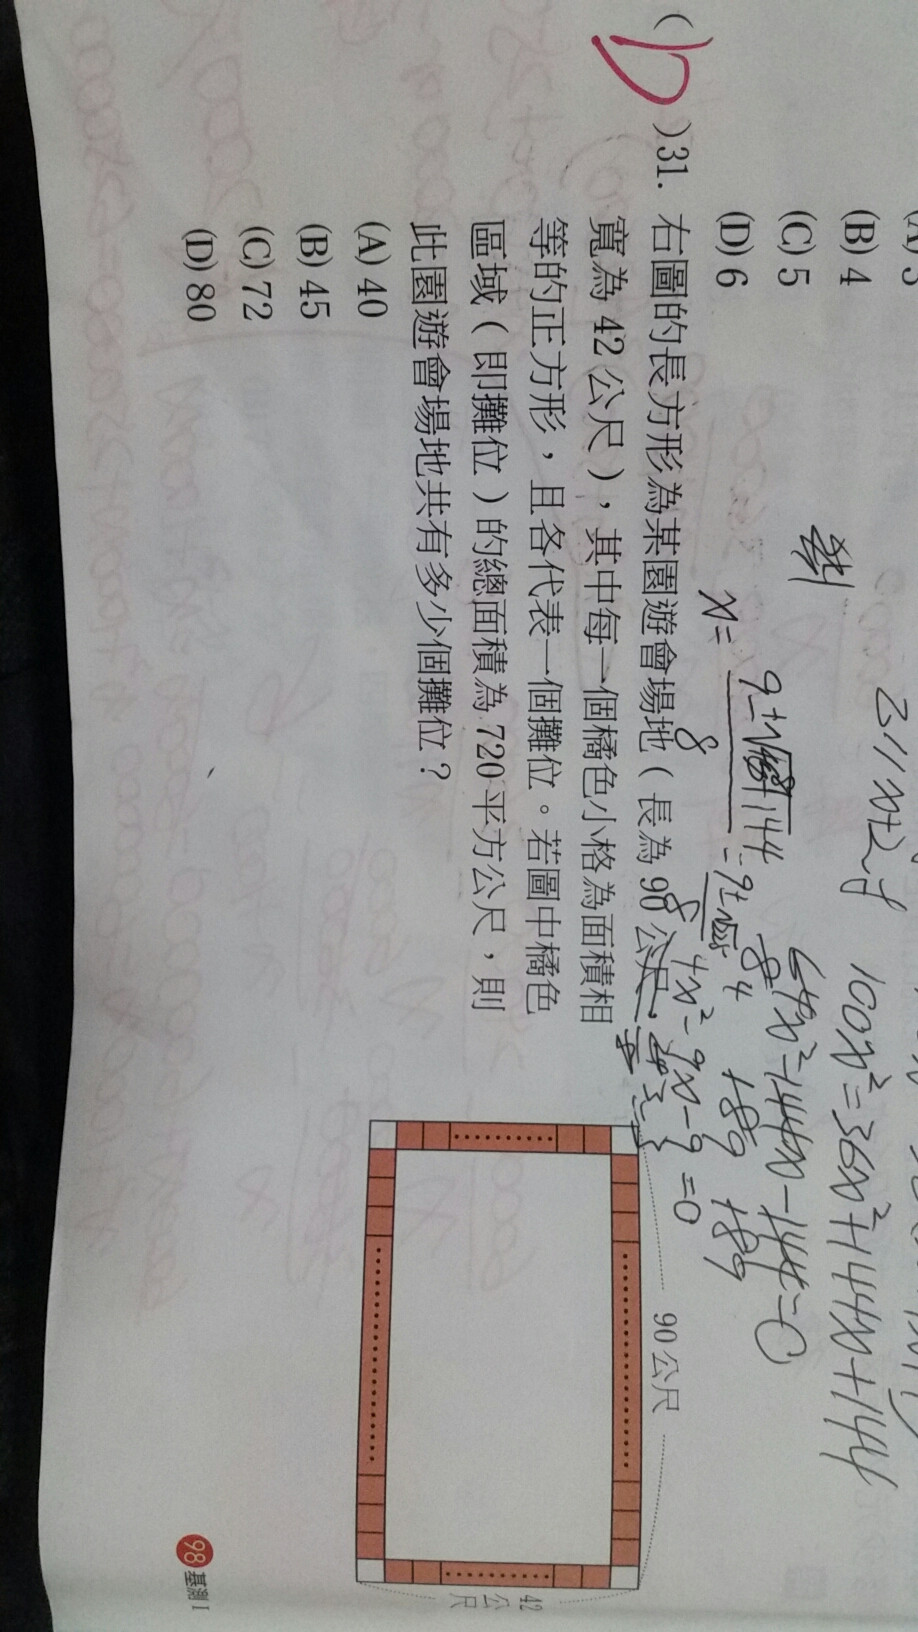 (B) 4
(C) 5
(D) 6
( D )31. 右圖的長方形為某園遊會場地(長為 90 公尺,
寬為 42 公尺),其中每一個橘色小格為面積相
等的正方形,且各代表一個攤位。若圖中橘色
區域(即攤位)的總面積為 720 平方公尺,則
此園遊會場地共有多少個攤位?
(A) 40
(B) 45
(C) 72
(D) 80
90 公尺
42
公尺
100x²=36x²+144x+144
64x²-144x-144=0
4x²-9x-9=0
x=
98 基測 I